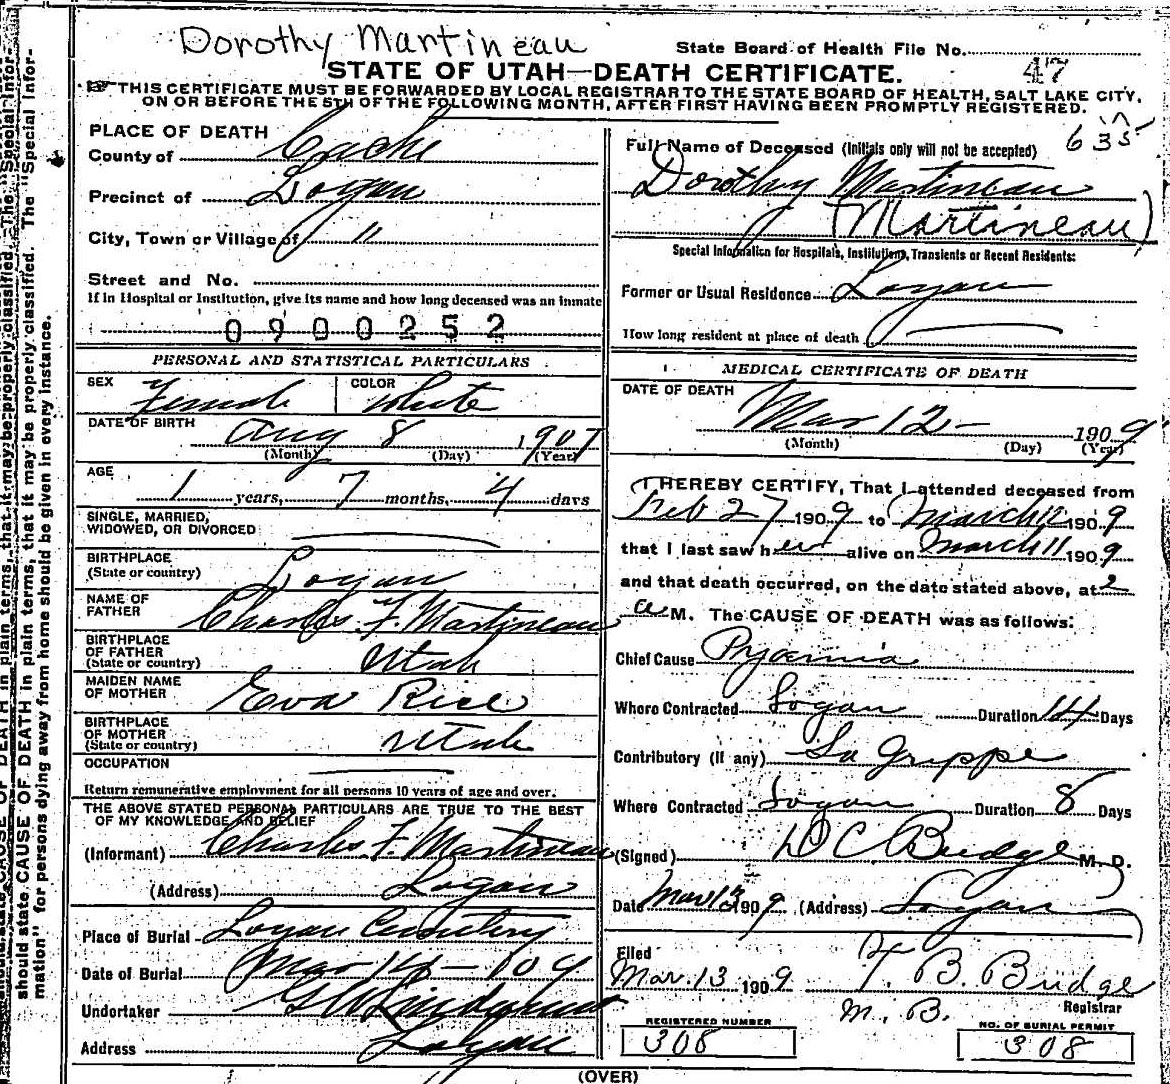 Dorothy Martineau
State Board of Health File No.
47
STATE OF UTAH—DEATH CERTIFICATE.
THIS CERTIFICATE MUST BE FORWARDED BY LOCAL REGISTRAR TO THE STATE BOARD OF HEALTH, SALT LAKE CITY,
ON OR BEFORE THE 5TH OF THE FOLLOWING MONTH, AFTER FIRST HAVING BEEN PROMPTLY REGISTERED.
635
PLACE OF DEATH
County of Cache
Precinct of Logan
City, Town or Village of "
Street and No.
If in Hospital or Institution, give its name and how long deceased was an inmate
0900252
PERSONAL AND STATISTICAL PARTICULARS
SEX Female COLOR White
DATE OF BIRTH Aug 8 1907
(Month) (Day) (Year)
AGE 1 years, 7 months, 4 days
SINGLE, MARRIED,
WIDOWED, OR DIVORCED
BIRTHPLACE
(State or country) Logan
NAME OF
FATHER Charles F. Martineau
BIRTHPLACE
OF FATHER
(State or country) Utah
MAIDEN NAME
OF MOTHER Eva Rice
BIRTHPLACE
OF MOTHER
(State or country) Utah
OCCUPATION
Return remunerative employment for all persons 10 years of age and over.
THE ABOVE STATED PERSONAL PARTICULARS ARE TRUE TO THE BEST
OF MY KNOWLEDGE AND BELIEF
(Informant) Charles F. Martineau
(Address) Logan
Place of Burial Logan Cemetery
Date of Burial Mar 14 - 109
Undertaker
Address Logan
Full Name of Deceased (Initials only will not be accepted)
Dorothy Martineau
(Martineau)
Special Information for Hospitals, Institutions, Transients or Recent Residents:
Former or Usual Residence Logan
How long resident at place of death
MEDICAL CERTIFICATE OF DEATH
DATE OF DEATH
Mar 12 - 1909
(Month) (Day) (Year)
I HEREBY CERTIFY, That I attended deceased from
Feb 27 1909 to March 12 1909
that I last saw her alive on March 11 1909
and that death occurred, on the date stated above, at 2
a M. The CAUSE OF DEATH was as follows:
Chief Cause Pyaemia
Where Contracted Logan Duration 14 Days
Contributory (If any) La Grippe
Where Contracted Logan Duration 8 Days
(Signed) D C Budge M. D.
Date Mar 12 1909 (Address) Logan
Filed
Mar. 13 1909 T. B. Budge
Registrar
M. B.
REGISTERED NUMBER
308
NO. OF BURIAL PERMIT
308
(OVER)
should state CAUSE OF DEATH in plain terms, that it may be properly classified. The "Special Infor-
mation" for persons dying away from home should be given in every instance.